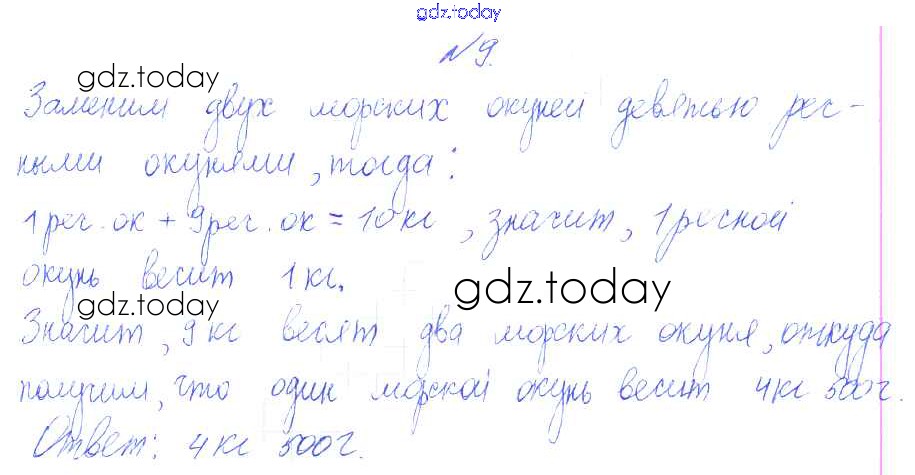 gdz.today
№ 9.
gdz.today
Заменим двух морских окуней девятью реч-
ными окунями, тогда:
1 реч. ок + 9 реч. ок = 10 кг, значит, 1 речной
окунь весит 1 кг.
gdz.today
gdz.today
Значит, 9 кг весят два морских окуня, откуда
получим, что один морской окунь весит 4 кг 500 г.
Ответ: 4 кг 500 г.